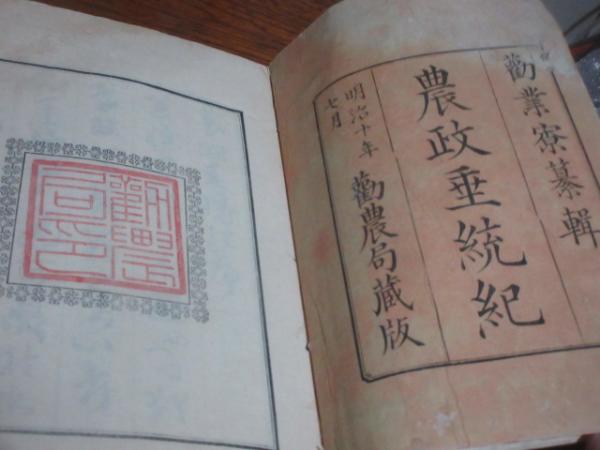 勸業寮纂輯
農政垂統紀
明治十年七月
勸農局蔵版
勸農局印